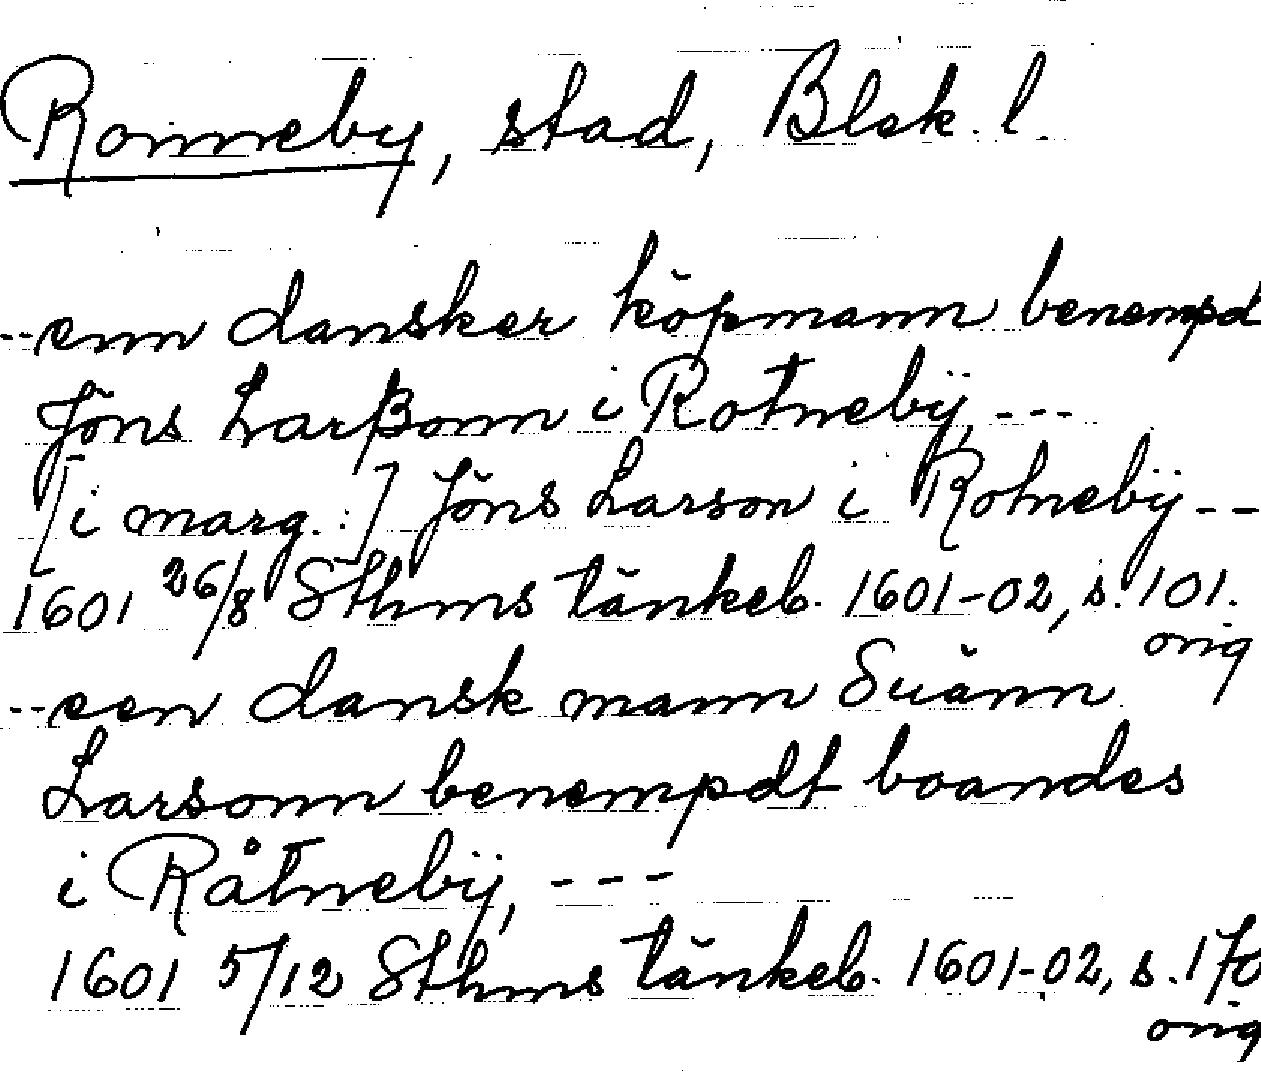 Ronneby, stad, Blek. l.
--enn dansker köpmann benempd
Jöns Larßonn i Rotnebÿ, ---
[i marg.:] Jöns Larson i Rotnebÿ --
1601 26/8 Sthms tänkeb. 1601-02, s. 101.
orig
--een dansk mann Suänn
Larsonn benempdt boandes
i Råtnebÿ, ---
1601 5/12 Sthms tänkeb. 1601-02, s. 170
orig